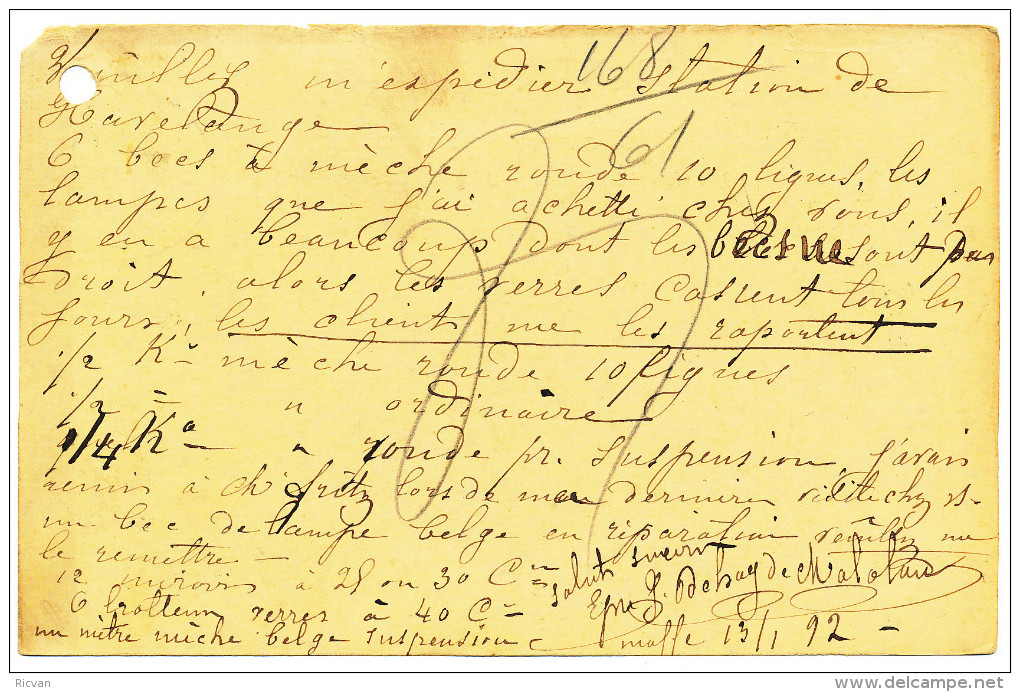 Veuillez m'expédier station de
Havelange
168
61
6 becs à mèche ronde 10 lignes, les
lampes que j'ai achetti chez vous, il
y en a beaucoup dont les becs ne sont pas
droit, alors les verres cassent tous les
jours, les client me les raportent
1/2 Ko mèche ronde 10 lignes
1/2 — " ordinaire
1/4 Ko — " ronde pr. suspension, j'avais
remis à ch fritz lors de ma dernière visite chez vs.
un bec de lampe belge en réparation veuillez me
le remettre —
12 miroirs à 25 ou 30 Cm
6 verres à 40 Cm
un mètre mèche belge suspension
salut sincère
Epse J. Dehoy de
maffe 13/1 92 —
Ricvan
www.delcampe.net